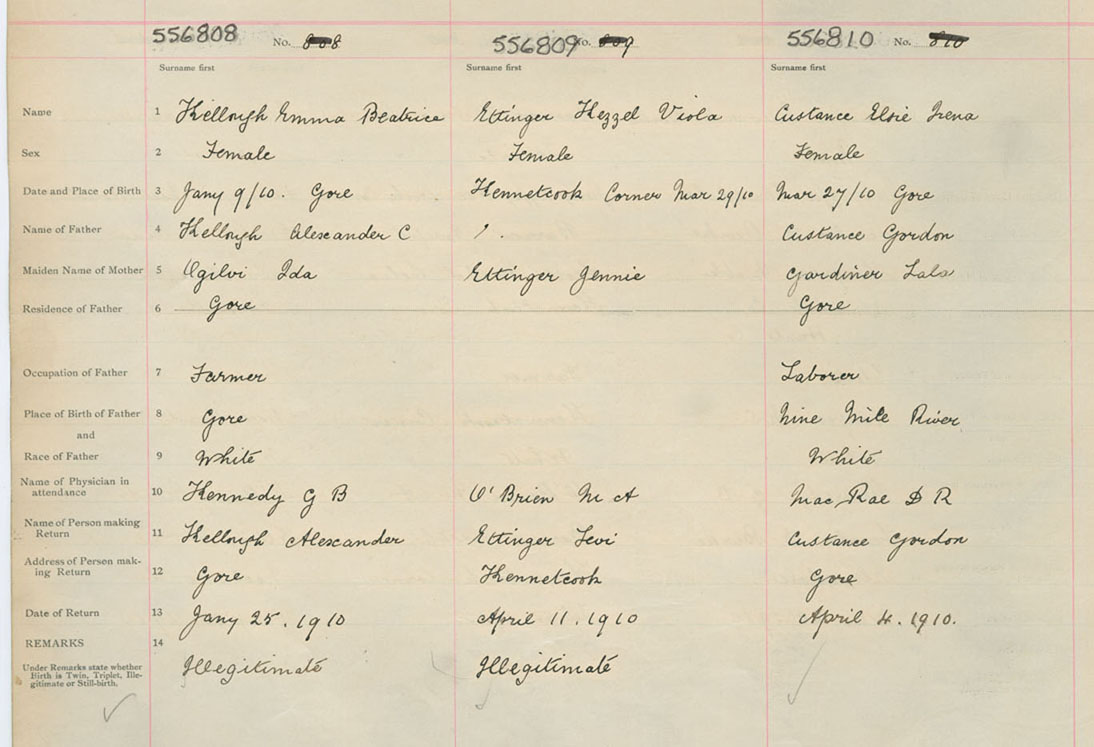 556808 No. 808 556809 No. 809 556810 No. 810
Surname first Surname first Surname first
Name 1 Kellough Emma Beatrice Ettinger Hezzel Viola Custance Elsie Irena
Sex 2 Female Female Female
Date and Place of Birth 3 Jany 9/10. Gore Kennetcook Corner Mar 29/10 Mar 27/10 Gore
Name of Father 4 Kellough Alexander C Custance Gordon
Maiden Name of Mother 5 Ogilvi Ida Ettinger Jennie Gardiner Lala
Residence of Father 6 Gore Gore
Occupation of Father 7 Farmer Laborer
Place of Birth of Father 8 Gore Nine Mile River
and
Race of Father 9 White White
Name of Physician in
attendance 10 Kennedy G B O'Brien M A MacRae D R
Name of Person making
Return 11 Kellough Alexander Ettinger Levi Custance Gordon
Address of Person mak-
ing Return 12 Gore Kennetcook Gore
Date of Return 13 Jany 25. 1910 April 11. 1910 April 4. 1910.
REMARKS 14
Under Remarks state whether
Birth is Twin, Triplet, Ille-
gitimate or Still-birth. Illegitimate Illegitimate